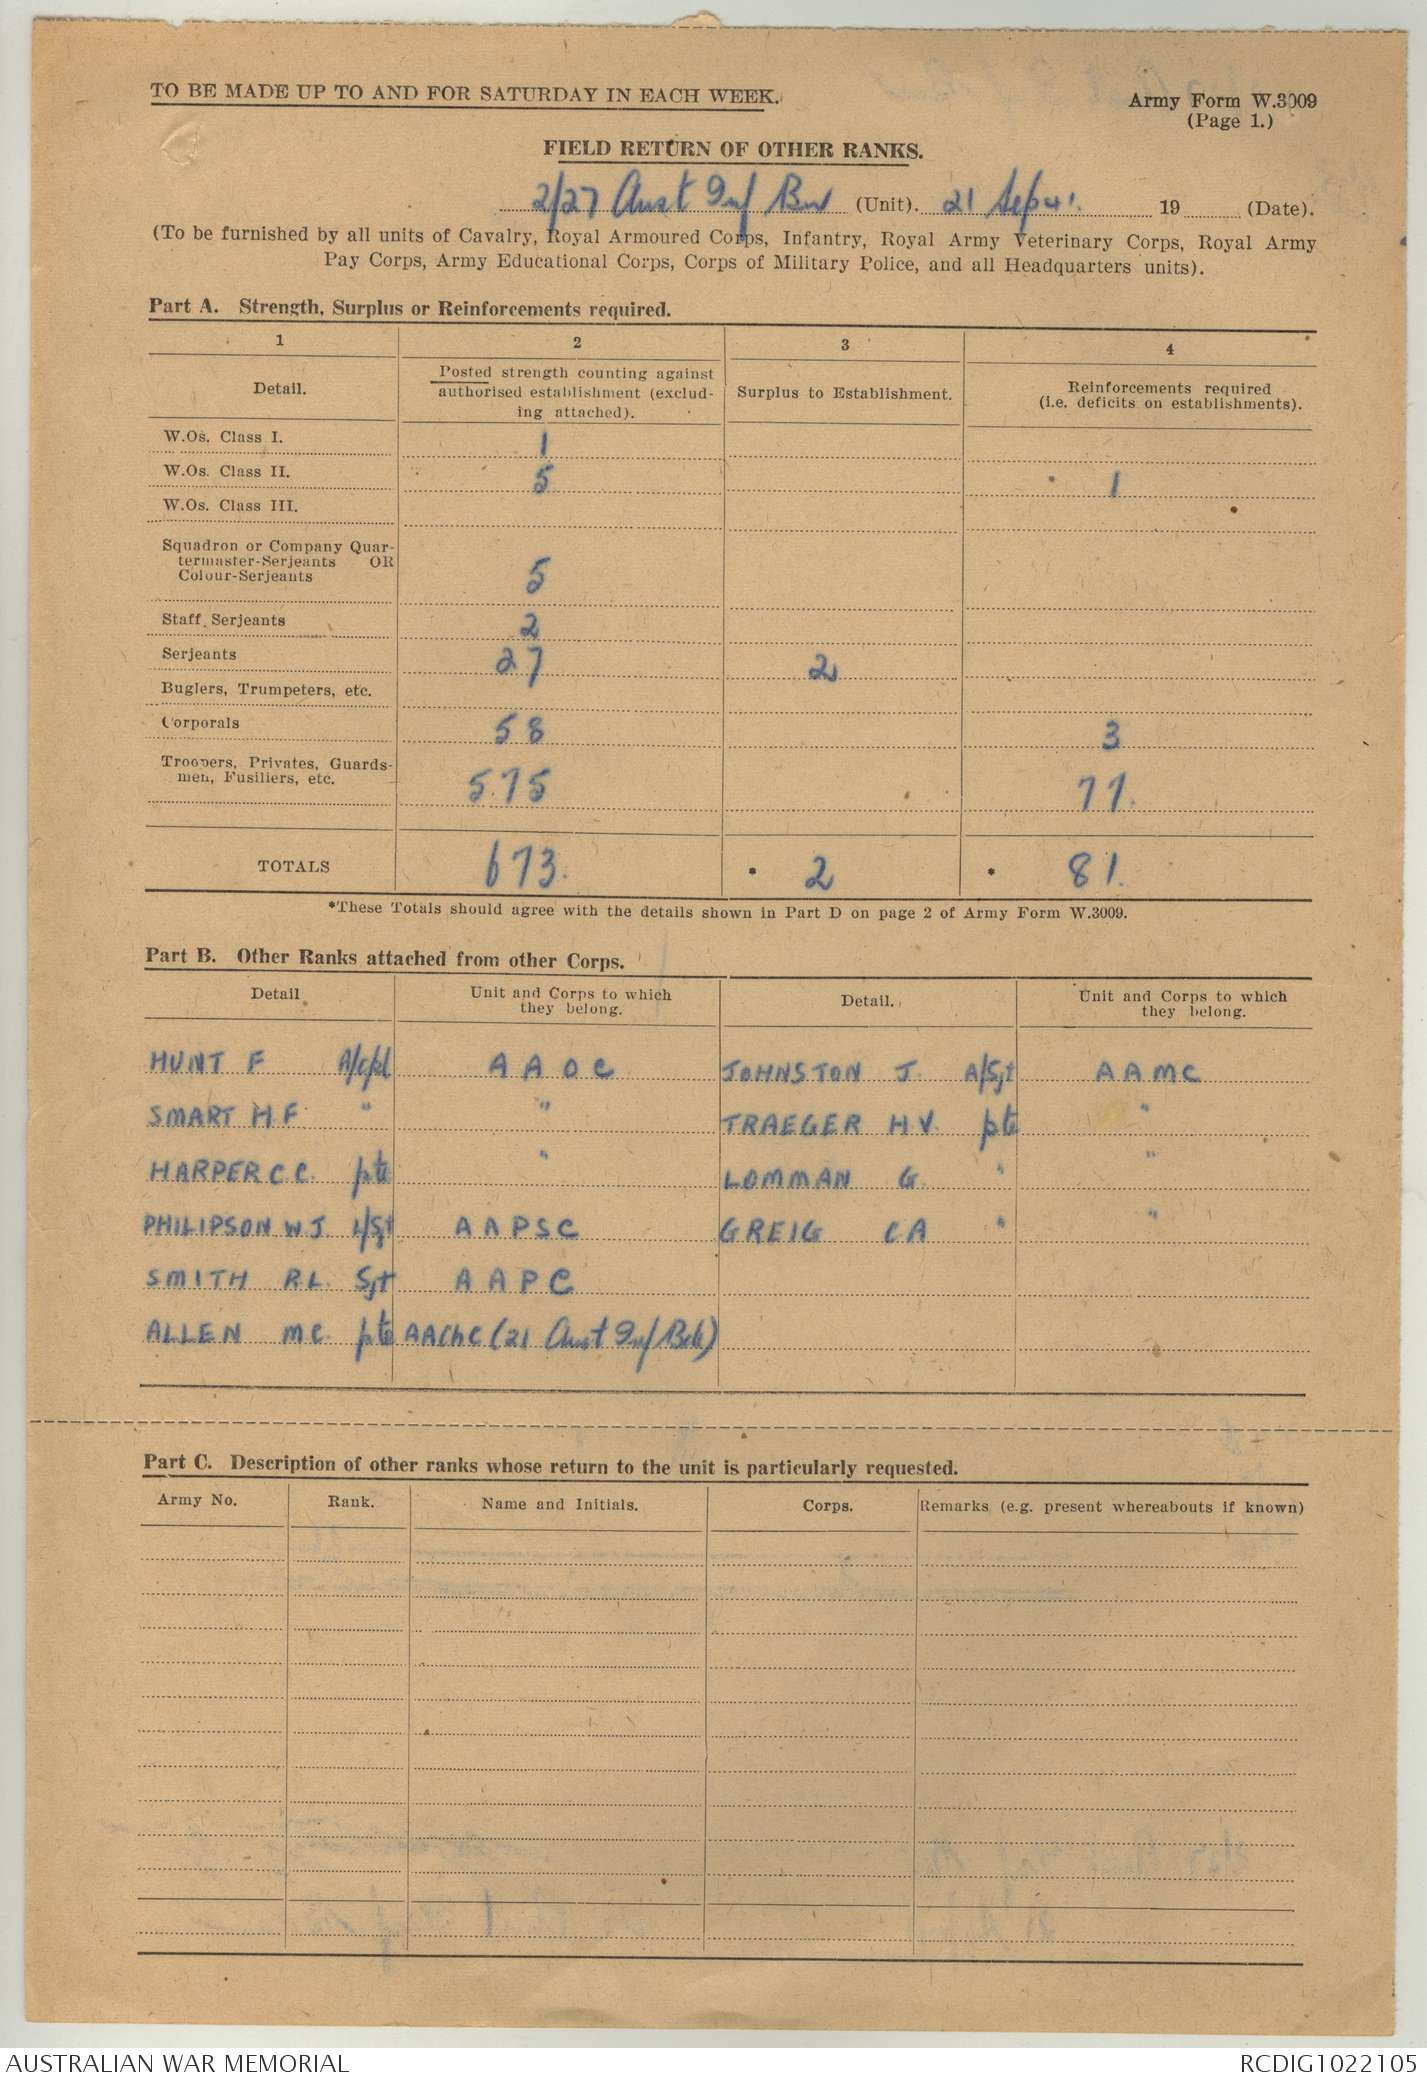 TO BE MADE UP TO AND FOR SATURDAY IN EACH WEEK.
Army Form W.3009
(Page 1.)
FIELD RETURN OF OTHER RANKS.
2/27 Aust Inf Bn (Unit). 21 Sep 41. 19 (Date).
(To be furnished by all units of Cavalry, Royal Armoured Corps, Infantry, Royal Army Veterinary Corps, Royal Army
Pay Corps, Army Educational Corps, Corps of Military Police, and all Headquarters units).
Part A. Strength, Surplus or Reinforcements required.
1 2 3 4
Detail. Posted strength counting against authorised establishment (exclud-ing attached). Surplus to Establishment. Reinforcements required (i.e. deficits on establishments).
W.Os. Class I. 1
W.Os. Class II. 5 1
W.Os. Class III.
Squadron or Company Quar-
termaster-Serjeants OR
Colour-Serjeants 5
Staff Serjeants 2
Serjeants 27 2
Buglers, Trumpeters, etc.
Corporals 58 3
Troopers, Privates, Guards-
men, Fusiliers, etc. 575 77.
TOTALS 673. * 2 * 81.
*These Totals should agree with the details shown in Part D on page 2 of Army Form W.3009.
Part B. Other Ranks attached from other Corps.
Detail Unit and Corps to which they belong. Detail. Unit and Corps to which they belong.
HUNT F A/Cpl AAOC JOHNSTON J. A/Sjt AAMC
SMART H F " " TRAEGER H V. pte "
HARPER C C. pte " LOMMAN G. " "
PHILIPSON W J. L/Sjt AAPSC GREIG CA " "
SMITH R.L. Sjt AAPC
ALLEN MC. pte AAChC (21 Aust Inf Bde)
Part C. Description of other ranks whose return to the unit is particularly requested.
Army No. Rank. Name and Initials. Corps. Remarks (e.g. present whereabouts if known)
AUSTRALIAN WAR MEMORIAL RCDIG1022105